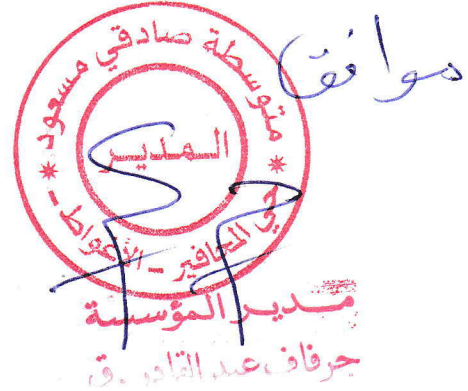 موافق
متوسطة صادقي مسعود
المدير
حي المحافير - الأغواط -
مدير المؤسسة
حرفاف عبد القادر .ق